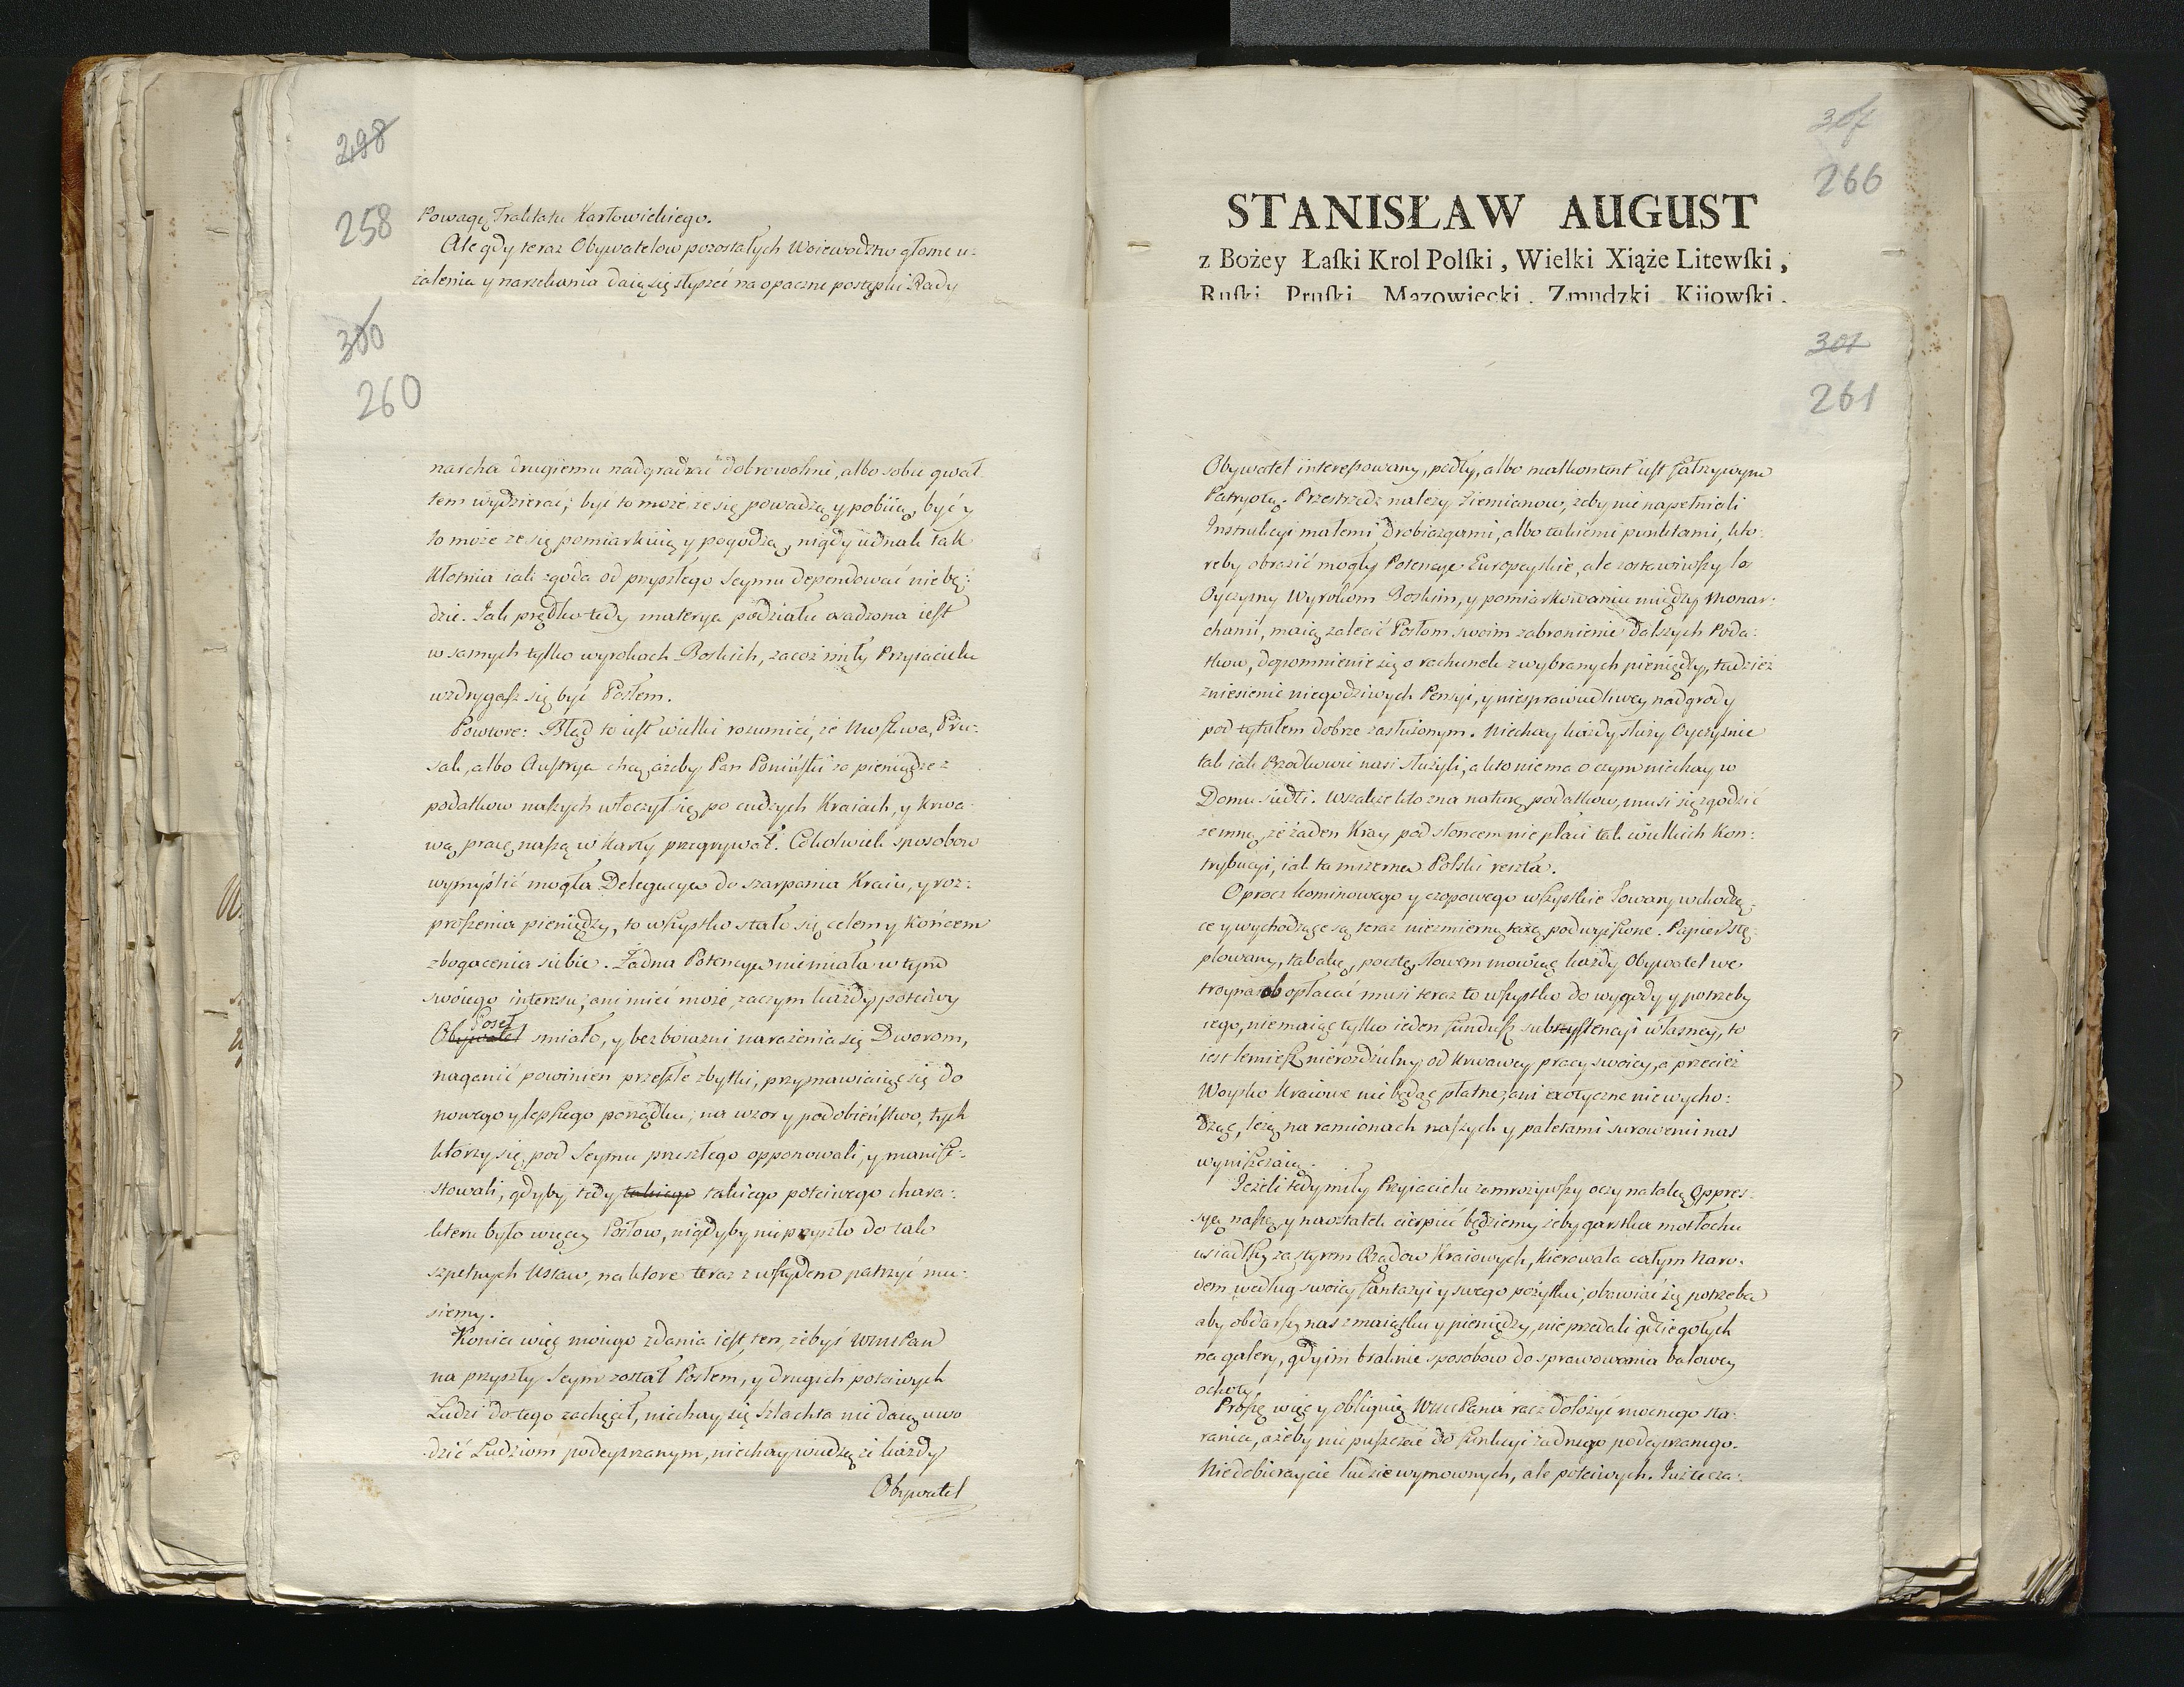 298
258
Powagę Traktatu Karłowickiego.
Ale gdy teraz Obywatelow pozostałych Woiewodztw głosne u-
żalenia y narzekania daią się słyszeć na opaczne postępki Rady
300
260
narcha drugiemu nadgradzać dobrowolnie, albo sobie gwał-
tem wydzierać; być to może że się powadzą y pobiią, być y
to może że się pomiarkuią y pogodzą, nigdy iednak tak
Kłotnia iak zgoda od przyszłego Seymu dependować nie bę-
dzie. Jak prędko tedy materya podziału osadzona iest
w samych tylko wyrokach Boskich, zacoż miły Przyiacielu
wzdrygasz się być Posłem.
Powtore: Błąd to iest wielki rozumieć, że Moskwa, Pru-
sak, albo Austrya chcą, ażeby Pan Poniński za pieniądze z
podatkow naszych włoczył się po cudzych Kraiach, y krwa-
wą pracę naszą w karty przegrywał. Cokolwiek sposobow
wymyślić mogła Delegacya do szarpania Kraiu, y roz-
proszenia pieniędzy, to wszystko stało się celem y końcem
zbogacenia siebie. Żadna Potencya niemiała w tym
swoiego interesu, ani mieć może, zaczym każdy poćciwy
Poseł
Obywatel smiało, y bez boiazni narażenia się Dworom,
naganić powinien przeszłe zbytki, przymawiaiąc się do
nowego y lepszego porządku, na wzor y podobieństwo, tych
którzy się pod Seymu przeszłego opponowali, y manife-
stowali, gdyby tedy takiego takiego poćciwego chara-
kteru było więcey Posłow, nigdyby nie przyszło do tak
szpetnych Ustaw, na ktore teraz z wstydem patrzyć mu-
siemy.
Konia więc moiego zdania iest ten, żebyś WmPan
na przyszły Seym został Posłem, y drugich poćciwych
Ludzi do tego zachęcił, niechay się Szlachta nie daią uwo
dzić Ludziom podeyrzanym, niechay wiedzą że każdy
Obywatel
307
266
STANISŁAW AUGUST
z Bożey Łaſki Krol Polſki, Wielki Xiąże Litewſki,
Ruſki Pruſki Mazowiecki, Zmudzki Kijowſki,
301
261
Obywatel interesowany, podły, albo malkontent iest fałszywym
Patryotą. Przestrzedz należy Ziemianow, żeby nie napełniali
Instrukcyi małemi drobiazgami, albo takiemi punktami, kto-
reby obrazić mogły Potencye Europeyskie, ale zostawiwszy los
Oyczyzny Wyrokom Boskim, y pomiarkowaniu między Monar-
chami, maią zalecić Posłom swoim zabronienie dalszych Poda-
tkow, dopomnienie się o rachunek z wybranych pieniędzy, tudzież
zniesienie niegodziwych Pensyi, y niesprawiedliwey nadgrody
pod tytułem dobrze zasłużonym. Niechay każdy służy Oyczyznie
tak iak Przodkowie nasi służyli, a kto nie ma o czym niechay w
Domu siedzi. Wszakże kto zna naturę podatkow, musi się zgodzić
zemną, że żaden Kray pod słońcem nie płaci tak wielkich Kon-
trybucyi, iak ta mizerna Polski reszta.
Oprocz kominowego y czopowego wszystkie towary wchodzą-
ce y wychodzące są teraz niezmierną taxą podwyższone. Papier Stę-
plowany, tabakę, pocztę, słowem mowiąc każdy Obywatel we
troynasob opłacać musi teraz to wszystko do wygody y potrzeby
iego, niemaiąc tylko ieden fundusz subsystencyi własney, to
iest lemiesz nierozdzielny od krwawey pracy swoiey, a przecież
Woysko Kraiowe nie będąc płatne, ani exotyczne nie wycho-
dząc, leżą na ramionach naszych y paletami surowemi nas
wyniszczaią.
Jeżeli tedy miły Przyiacielu zamrożywszy oczy na taką Oppres-
syą naszą, y naostatek cierpieć będziemy żeby garstka motłochu
usiadłszy za styrem Rządow Kraiowych, kierowała całym Naro-
dem według swoiey fantazyi y swego pożytku, obawiać się potrzeba
aby obdarszy nas z maiątku y pieniędzy, nie przedali gdzie gołych
na galery, gdy im braknie sposobow do sprawowania balowey
ochoty.
Proszę więc y obliguię WmPana racz dołożyć mocnego sta-
rania, ażeby nie puszczać do funkcyi żadnego podeyrzanego.
Niedobieraycie ludzi wymownych, ale poćciwych. Już te cza-